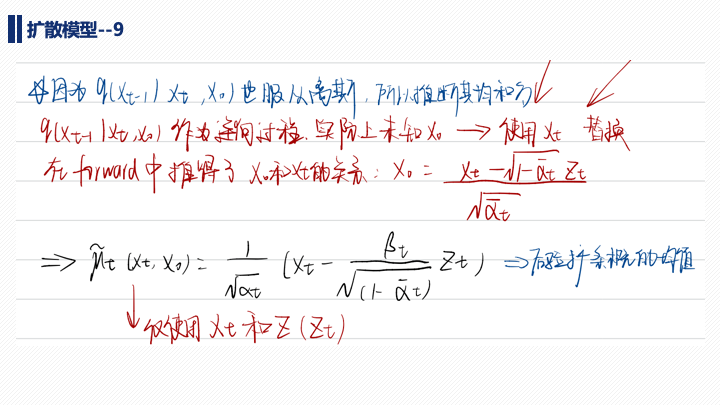 扩散模型--9
因为 q(xt-1) xt , x0) 也服从高斯, 所以推断其均和方
q(xt-1|xt, x0) 作为逆向过程, 实际上未知 x0 → 使用 xt 替换
在 forward 中推得了 x0和xt的关系: x0 = (xt - √(1-ᾱt) zt) / √ᾱt
⇒ μ̃t (xt, x0) = 1/√αt (xt - βt/√(1-ᾱt) zt) ⇒ 后验条概的均值
↓ 仅使用 xt 和 z (zt)